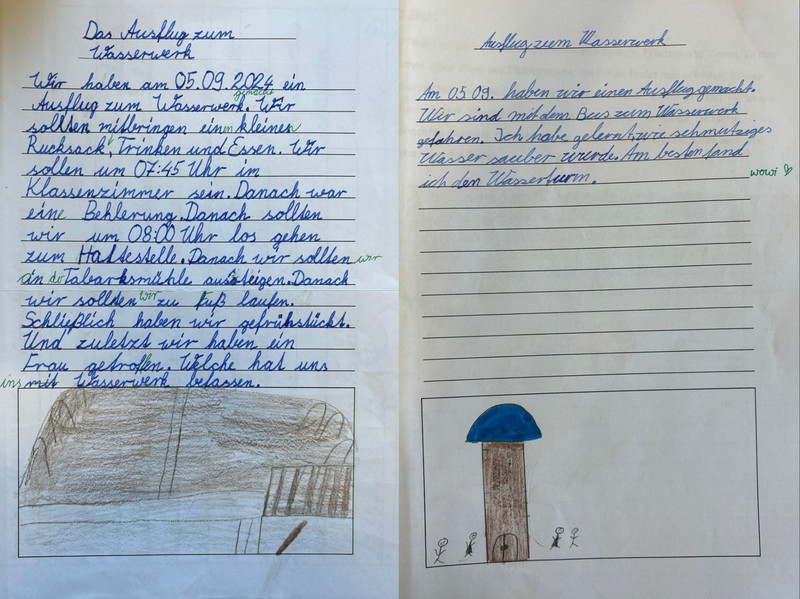 Das Ausflug zum
Wasserwerk
Wir haben am 05.09.2024 ein
gemacht
Ausflug zum Wasserwerk. Wir
sollten mitbringen einen kleinen
Rucksack, Trinken und Essen. Wir
sollen um 07:45 Uhr im
Klassenzimmer sein. Danach war
eine Behlerung. Danach sollten
wir um 08:00 Uhr los gehen
zum Haltestelle. Danach wir sollten wir
an Tabarksmühle aussteigen. Danach
wir sollten wir zu Fuß laufen.
Schließlich haben wir gefrühstückt.
Und zuletzt wir haben ein
Frau getroffen. Welche hat uns
ins mit Wasserwerk befassen.
Ausflug zum Wasserwerk
Am 05.09. haben wir einen Ausflug gemacht.
Wir sind mit dem Bus zum Wasserwerk
gefahren. Ich habe gelernt, wie schmutziges
Wasser sauber wurde. Am besten fand
ich den Wasserturm.
wowi